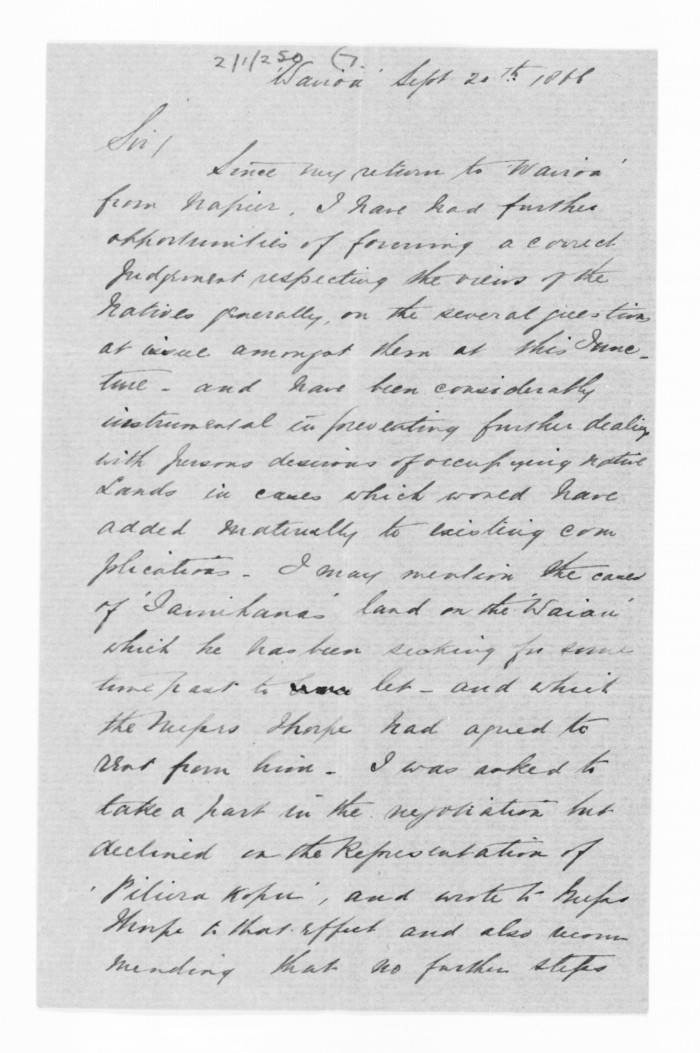 2/1/250 (7.
'Wairoa' Sept 20th. 1866
Sir/
Since my return to 'Wairoa'
from Napier, I have had further
opportunities of forming a correct
Judgment respecting the views of the
Natives generally, on the several questions
at issue amongst them at this Junc-
ture - and have been considerably
instrumental in preventing further dealings
with persons desirous of occupying native
Lands in cases which would have
added materially to existing com
plications - I may mention the cases
of 'Tamihana's' land on the 'Waiau'
which he has been seeking for some
time past to let - and which
the Messrs Thorpe had agreed to
rent from him - I was asked to
take a part in the negotiation but
declined on the Representation of
'Pitiera Kopu', and wrote to Messrs
Thorpe to that effect and also recom
mending that no further steps